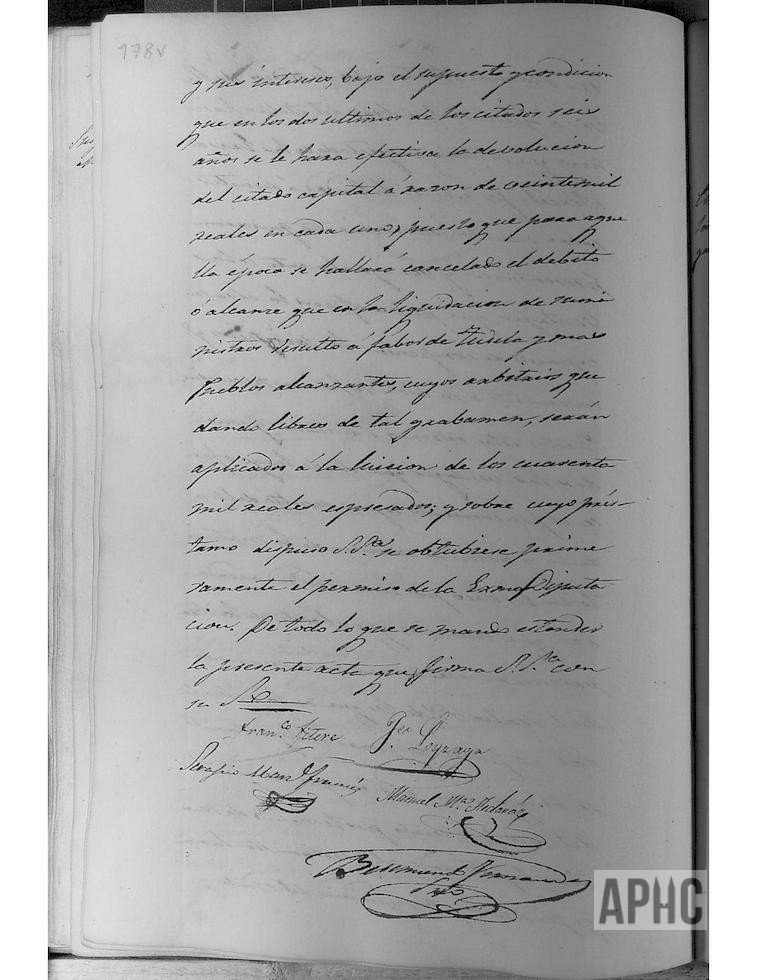 178v
y sus intereses, bajo el supuesto y condicion
que en los dos ultimos de los citados seis
años se le hara efectiva la devolucion
del citado capital á razon de veinte mil
reales en cada uno, puesto que para aque
lla época se hallará cancelado el debito
ó alcanze que en la liquidacion de sumi
nistros resultó á fabor de Tudela y mas
Pueblos alcanzantes, cuyos arbitrios que
dando libres de tal grabamen, serán
aplicados á la luicion de los cuarenta
mil reales espresados; y sobre cuyo prés-
tamo dispuso S.S.ª se obtubiese prime
ramente el permiso de la Exma Diputa
cion. De todo lo que se mandó estender
la presente acta que firma S.S.ª con
su
Fran.co
Manuel M.ª
APHC